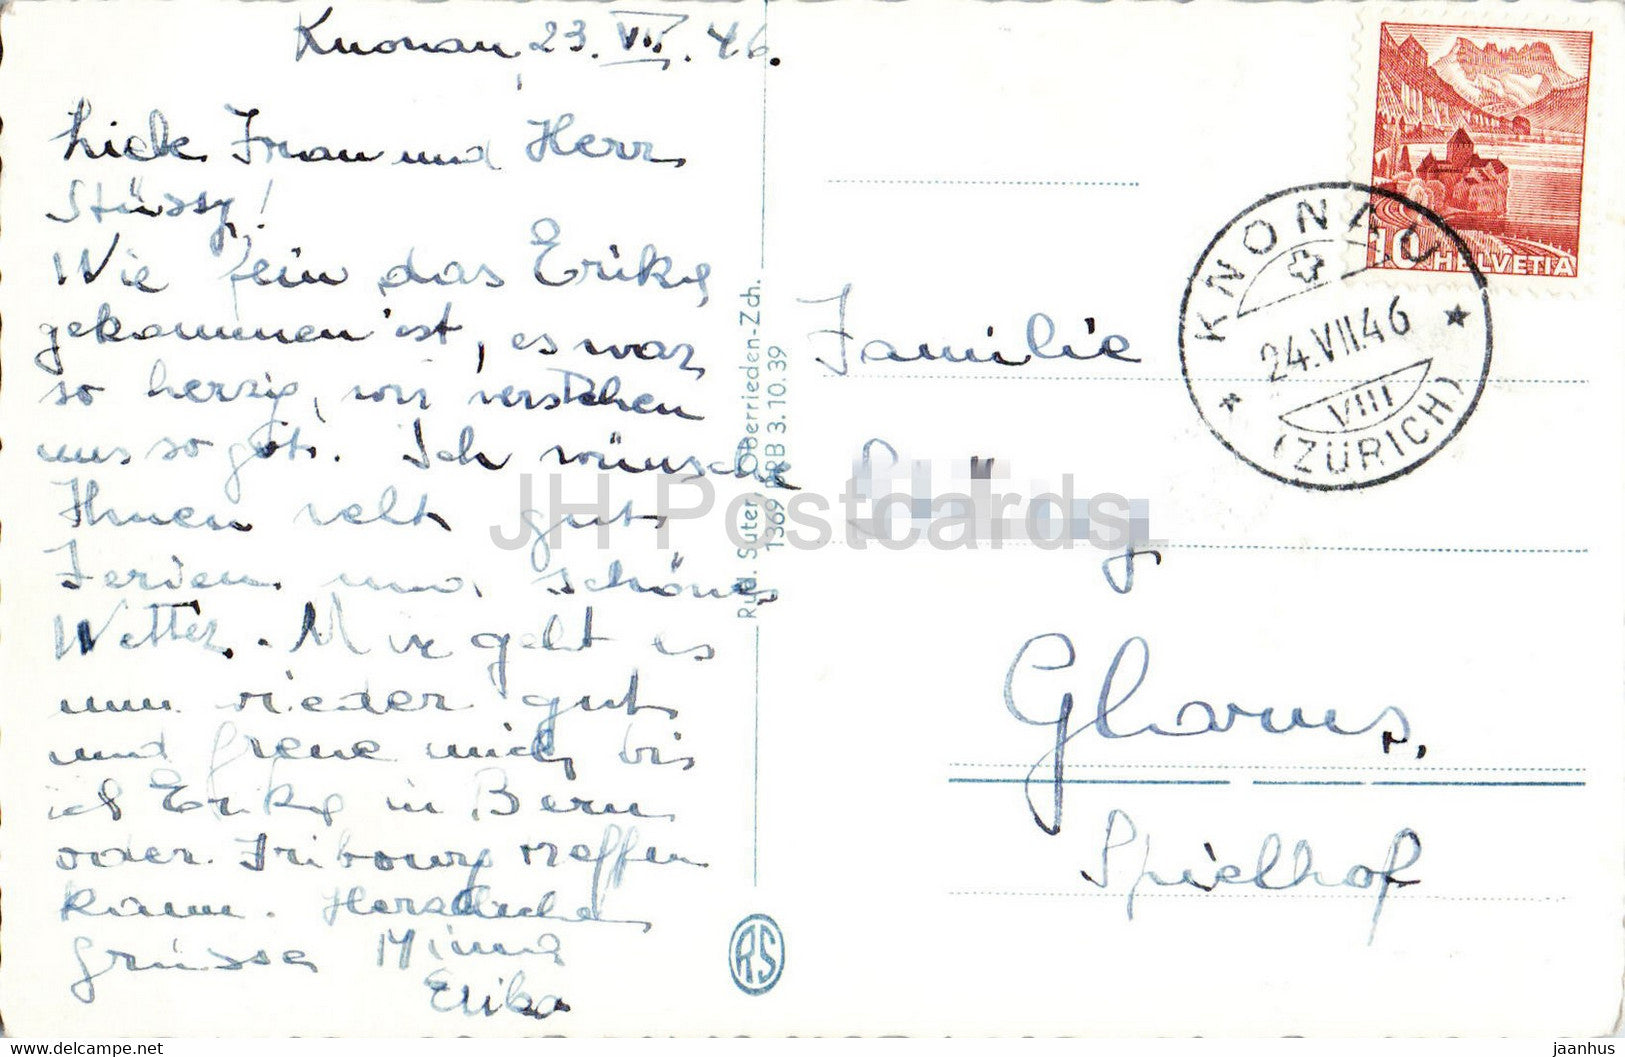 Knonau, 23. VII. 46.
Liebe Frau und Herr
Stüssy!
Wie fein das Erika
gekommen ist, es war
so herzig, wir verstehen
uns so gut. Ich wünsche
Ihnen recht gute
Ferien und schönes
Wetter. Mir geht es
nun wieder gut
und freue mich, bis
ich Erika in Bern
oder Fribourg treffen
kann. Herzliche
Grüsse Mima
Erika
Rud. Suter, Oberrieden-Zch.
1369 BRB 3.10.39
RS
10 HELVETIA
KNONAU
24.VII.46
VIII
(ZÜRICH)
Familie
Glarus.
Spielhof
JH Postcards
jaanhus